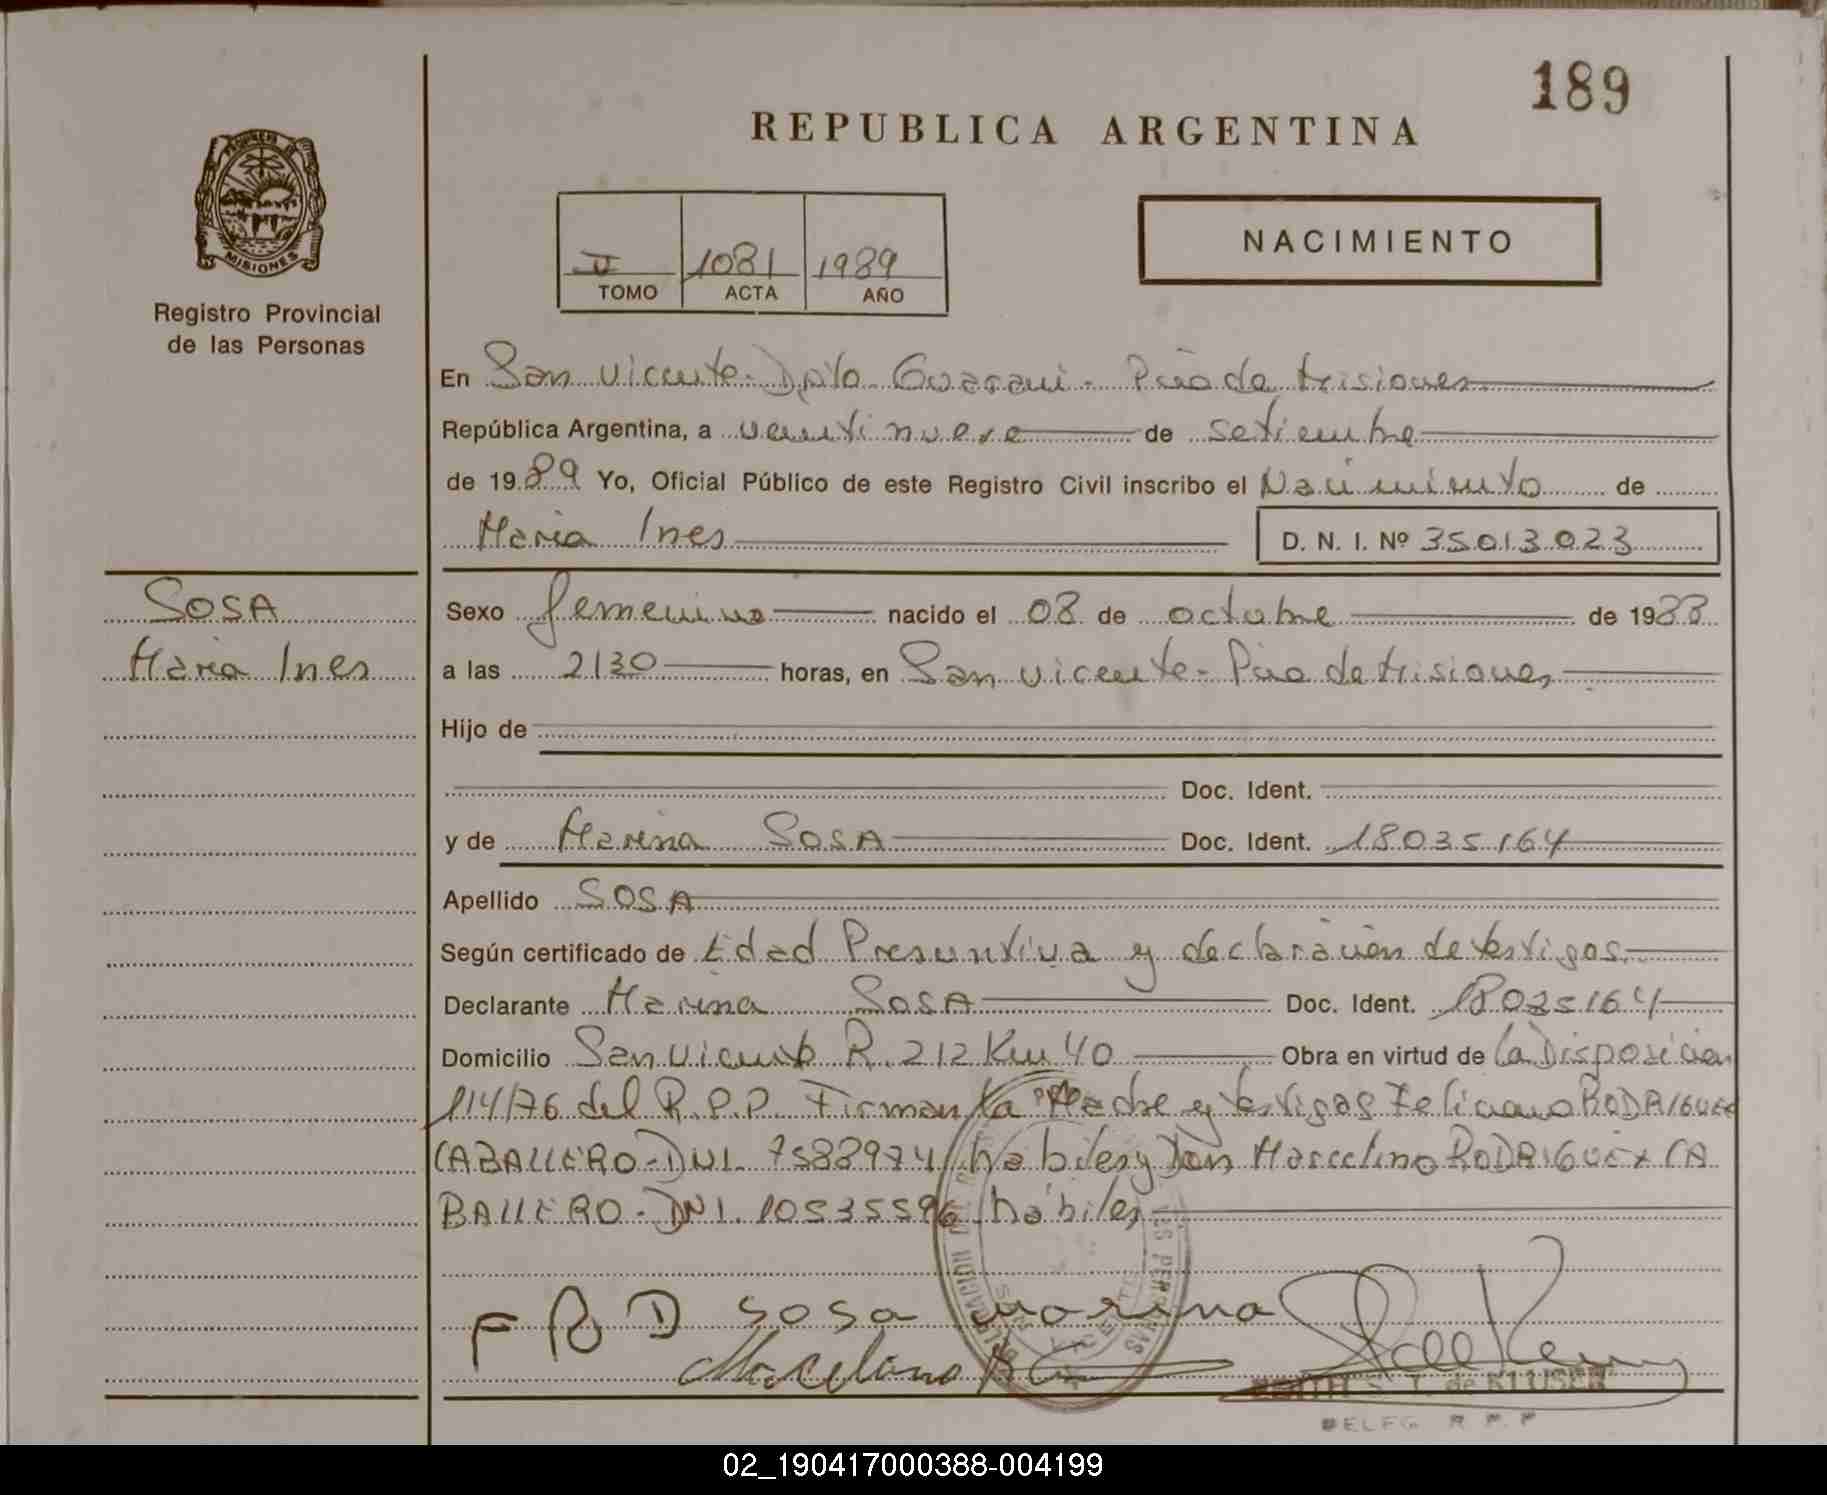 189
REPUBLICA ARGENTINA
PROVINCIA D
MISIONES
Registro Provincial
de las Personas
II 1081 1989
TOMO ACTA AÑO
NACIMIENTO
En San Vicente - Dpto Guarani - Pcia de Misiones
República Argentina, a veintinueve de setiembre
de 1989 Yo, Oficial Público de este Registro Civil inscribo el Nacimiento de
Maria Ines D. N. I. Nº 35013023
SOSA
Maria Ines
Sexo femenino nacido el 08 de octubre de 1988
a las 2130 horas, en San Vicente - Pcia de Misiones
Hijo de
Doc. Ident.
y de Marina SOSA Doc. Ident. 18035164
Apellido SOSA
Según certificado de Edad Presuntiva y declaración de testigos.
Declarante Marina SOSA Doc. Ident. 18035164
Domicilio San Vicente R. 212 Km 40 Obra en virtud de la Disposición
114/76 del R.P.P. Firman la Madre y testigos Feliciano RODRIGUEZ
CABALLERO - DNI. 7588974 hábiles y Don Marcelino RODRIGUEZ CA
BALLERO - DNI. 10535596 hábiles
F R D sosa marina
Marcelino R C
S. T. de KLUSER
DELEG. R. P. P
02_190417000388-004199